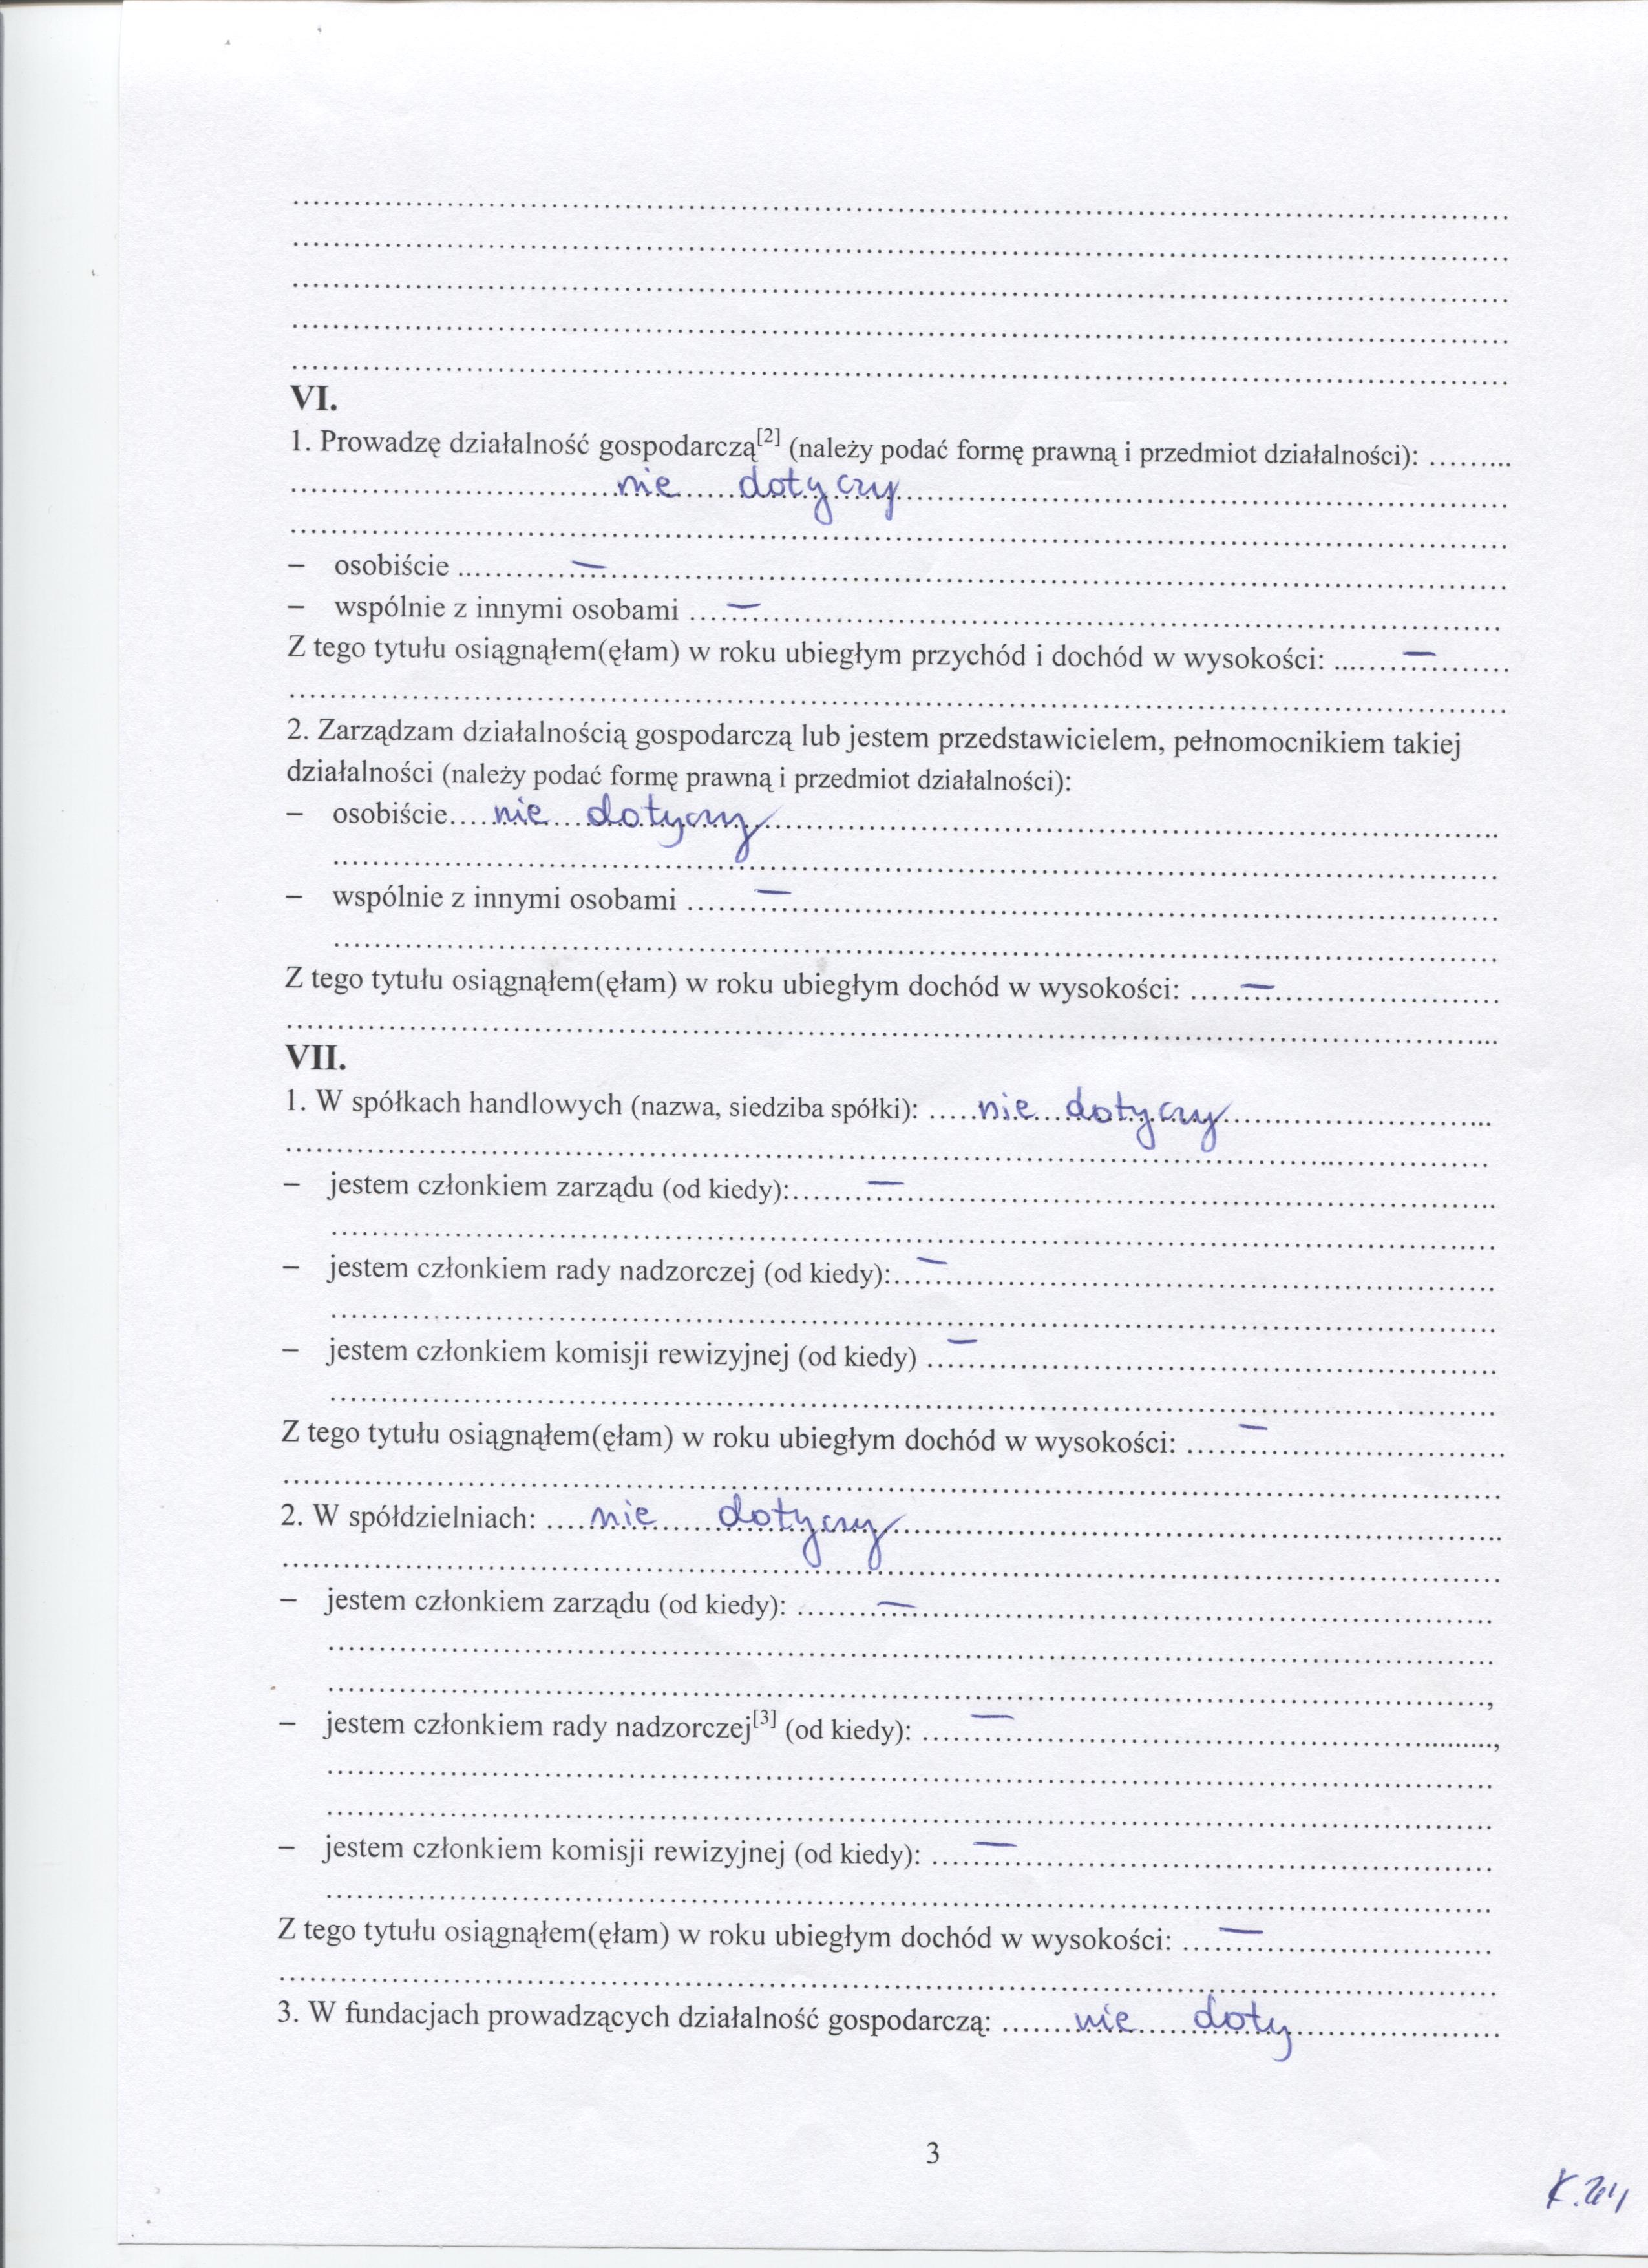 VI.
1. Prowadzę działalność gospodarczą[2] (należy podać formę prawną i przedmiot działalności): .........
nie dotyczy
– osobiście ........... — 
– wspólnie z innymi osobami .... —
Z tego tytułu osiągnąłem(ęłam) w roku ubiegłym przychód i dochód w wysokości: ........ —
2. Zarządzam działalnością gospodarczą lub jestem przedstawicielem, pełnomocnikiem takiej
działalności (należy podać formę prawną i przedmiot działalności):
– osobiście.... nie dotyczy
– wspólnie z innymi osobami ....... —
Z tego tytułu osiągnąłem(ęłam) w roku ubiegłym dochód w wysokości: ..... —
VII.
1. W spółkach handlowych (nazwa, siedziba spółki): ..... nie dotyczy
– jestem członkiem zarządu (od kiedy):....... —
– jestem członkiem rady nadzorczej (od kiedy):... —
– jestem członkiem komisji rewizyjnej (od kiedy) ... —
Z tego tytułu osiągnąłem(ęłam) w roku ubiegłym dochód w wysokości: ..... —
2. W spółdzielniach: .... nie dotyczy
– jestem członkiem zarządu (od kiedy): ........ —
– jestem członkiem rady nadzorczej[3] (od kiedy): ..... — ,
– jestem członkiem komisji rewizyjnej (od kiedy): ..... —
Z tego tytułu osiągnąłem(ęłam) w roku ubiegłym dochód w wysokości: .... —
3. W fundacjach prowadzących działalność gospodarczą: ....... nie doty
3